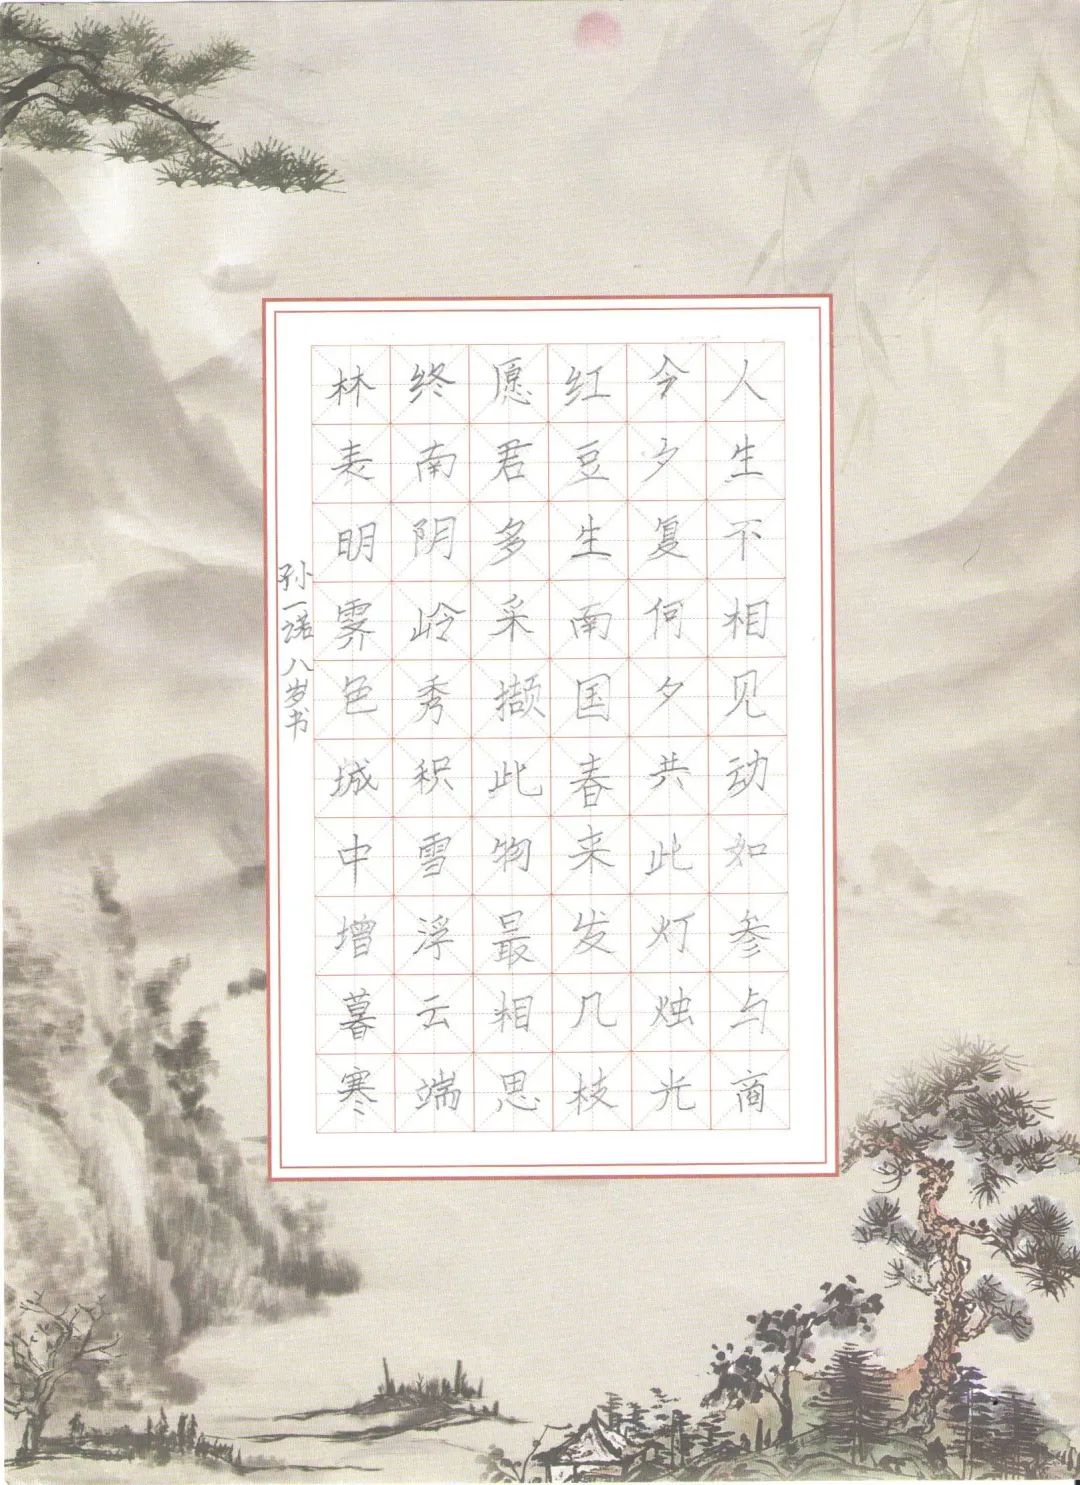 人生不相见动如参与商
今夕复何夕共此灯烛光
红豆生南国春来发几枝
愿君多采撷此物最相思
终南阴岭秀积雪浮云端
林表明霁色城中增暮寒
孙一诺八岁书